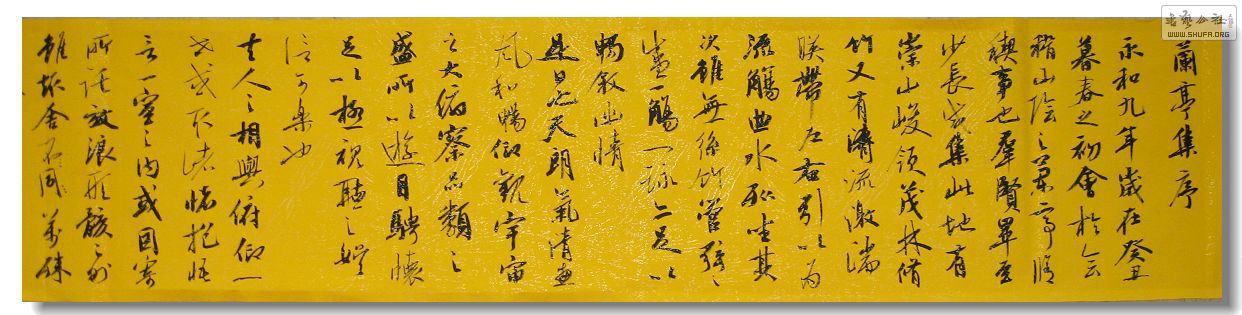 蘭亭集序
永和九年歲在癸丑
暮春之初會於會
稽山陰之蘭亭脩
禊事也羣賢畢至
少長咸集此地有
崇山峻領茂林脩
竹又有清流激湍
暎帶左右引以為
流觴曲水列坐其
次雖無絲竹管弦之
盛一觴一詠亦足以
暢敘幽情
是日也天朗氣清惠
風和暢仰觀宇宙
之大俯察品類之
盛所以遊目騁懷
足以極視聽之娛
信可樂也
夫人之相與俯仰一
世或取諸懷抱悟
言一室之內或因寄
所託放浪形骸之外
雖趣舍萬殊
書藝公社
WWW.SHUFA.ORG